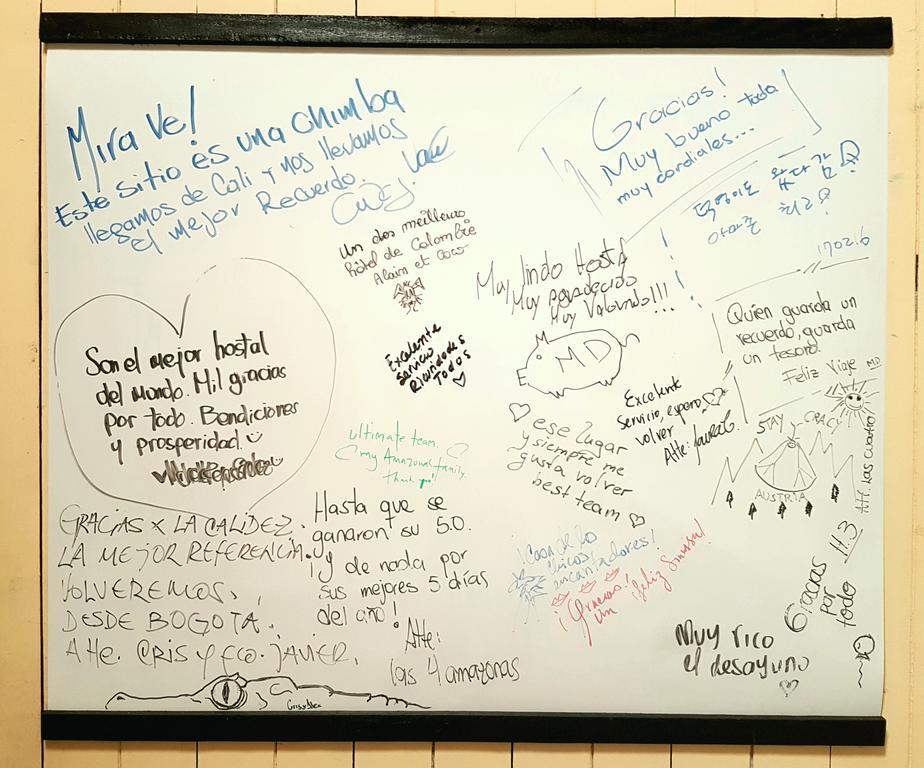 Mira Ve!
Este sitio es una chimba
llegamos de Cali y nos llevamos
el mejor Recuerdo.
Gracias!
Muy bueno todo
muy cordiales...
아마존 최고!
170216
Un des meilleurs
hôtel de Colombie
Alain et Coco
Muy lindo Hostal
Muy agradecido
Muy Valorado!!!
MD
Quien guarda un
recuerdo, guarda
un tesoro.
Feliz Viaje MD
Son el mejor hostal
del mundo. Mil gracias
por todo. Bendiciones
y prosperidad.
Excelente
Servicio
Ricundos
Todos
Excelente
Servicio, espero
volver
Atte: Laura G.
STAY CRAZY
AUSTRIA
Att. Las cuatro
ese lugar
y siempre me
gusta volver
best team
ultimate team.
my Amazonas family.
Thank you!
GRACIAS X LA CALIDEZ.
LA MEJOR REFERENCIA.
VOLVEREMOS.
DESDE BOGOTA.
Atte. CRIS Y FCO. JAVIER.
Hasta que se
ganaron su 5.0.
¡y de nada por
sus mejores 5 días
del año!
Atte:
las 4 amazonas
encantadores!
¡Gracias!
Muy rico
el desayuno
Gracias
por
todo H.3